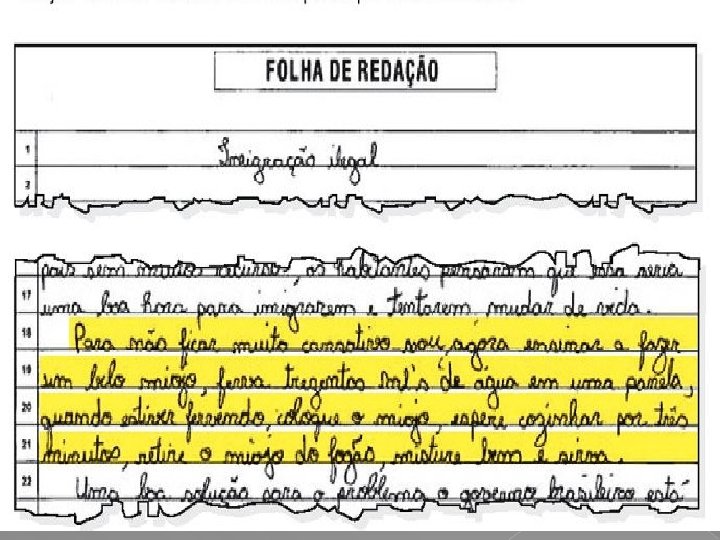 FOLHA DE REDAÇÃO
1 Imigração ilegal
2
país sem muito recurso, os habitantes pensaram que essa seria
17 uma boa hora para imigrarem e tentarem mudar de vida.
18 Para não ficar muito cansativo vou agora ensinar a fazer
19 um belo miojo, ferva trezentos ml's de água em uma panela,
20 quando estiver fervendo, coloque o miojo, espere cozinhar por três
21 minutos, retire o miojo do fogão, misture bem e sirva.
22 Uma boa solução para o problema o governo brasileiro está